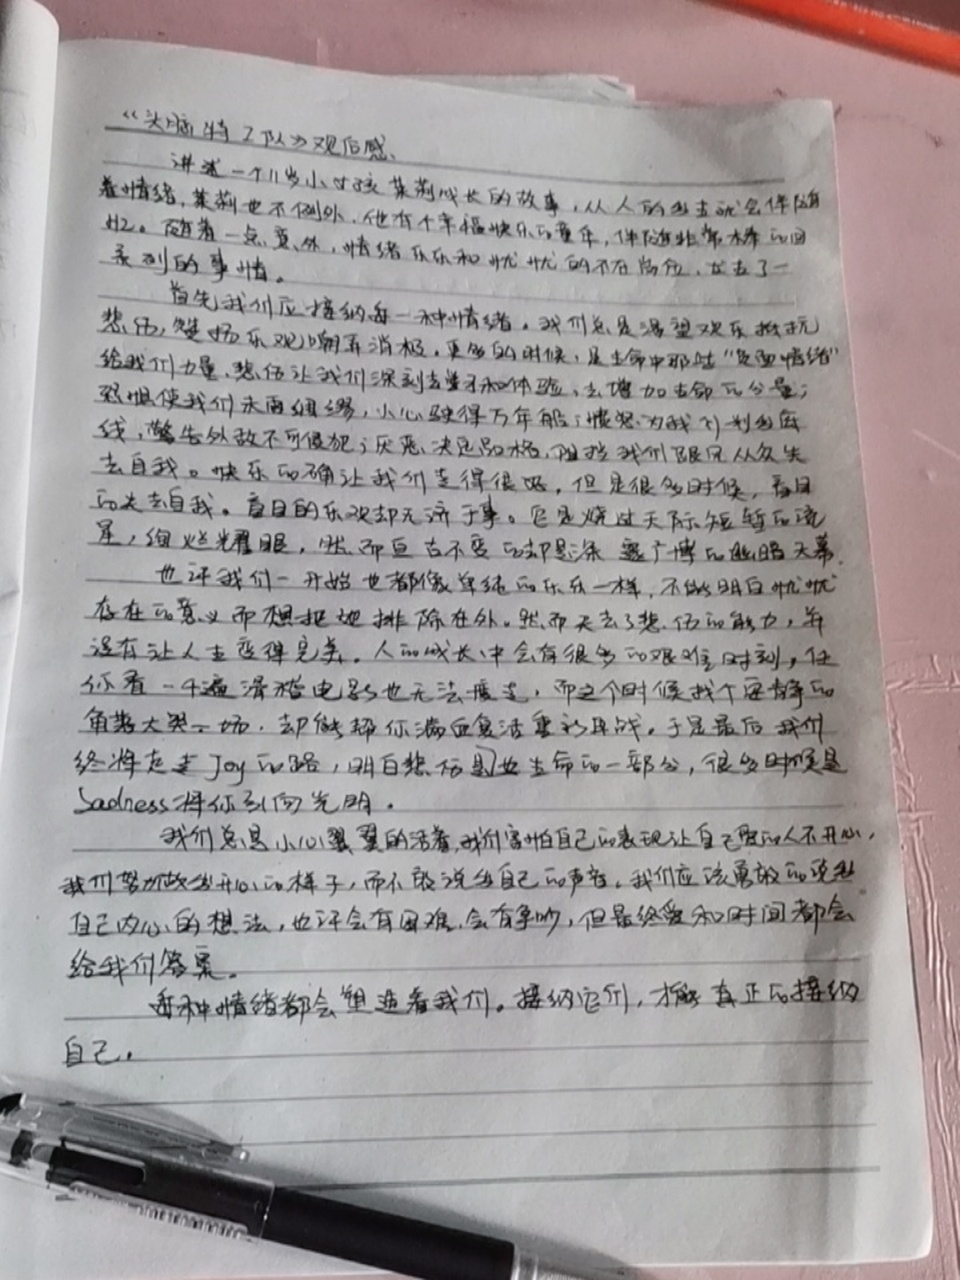 《头脑特工队》观后感、
讲述一个11岁小女孩茱莉成长的故事，从人的出生就会伴随
着情绪，茱莉也不例外，他有个幸福快乐的童年，伴随非常棒的回
忆。随着一点意外，情绪乐乐和忧忧的不在岗位，发生了一
系列的事情。
首先我们应接纳每一种情绪。我们总是渴望欢乐抵抗
悲伤，赞扬乐观嘲弄消极。更多的时候，是生命中那些“负面情绪”
给我们力量、悲伤让我们深刻去鉴别和体验，去增加生命的分量；
恐惧使我们未雨绸缪，小心驶得万年船；愤怒为我们划出底
线，警告外敌不可侵犯；厌恶决定品格，阻挡我们跟风从众失
去自我。快乐的确让我们走得很远，但是很多时候，盲目
的失去自我。盲目的乐观却无济于事。它是烧过天际短暂的流
星，绚烂耀眼，然而亘古不变的却是深邃广博的幽暗天幕。
也许我们一开始也都像单纯的乐乐一样，不能明白忧忧
存在的意义而想把她排除在外。然而失去了悲伤的能力，并
没有让人生变得完美。人的成长中会有很多的艰难时刻，任
你看一千遍滑稽电影也无法度过，而这个时候找个安静的
角落大哭一场，却能够你满血复活重新再战。于是最后我们
终将走过Joy的路，明白悲伤是生命的一部分，很多时候是
Sadness将你引向光明。
我们总是小心翼翼的活着，我们害怕自己的表现让自己爱的人不开心，
我们努力做出开心的样子，而不敢说出自己的声音。我们应该勇敢的说出
自己内心的想法，也许会有困难，会有争吵，但最终爱和时间都会
给我们答案。
每种情绪都会塑造着我们。接纳它们，才能真正的接纳
自己。